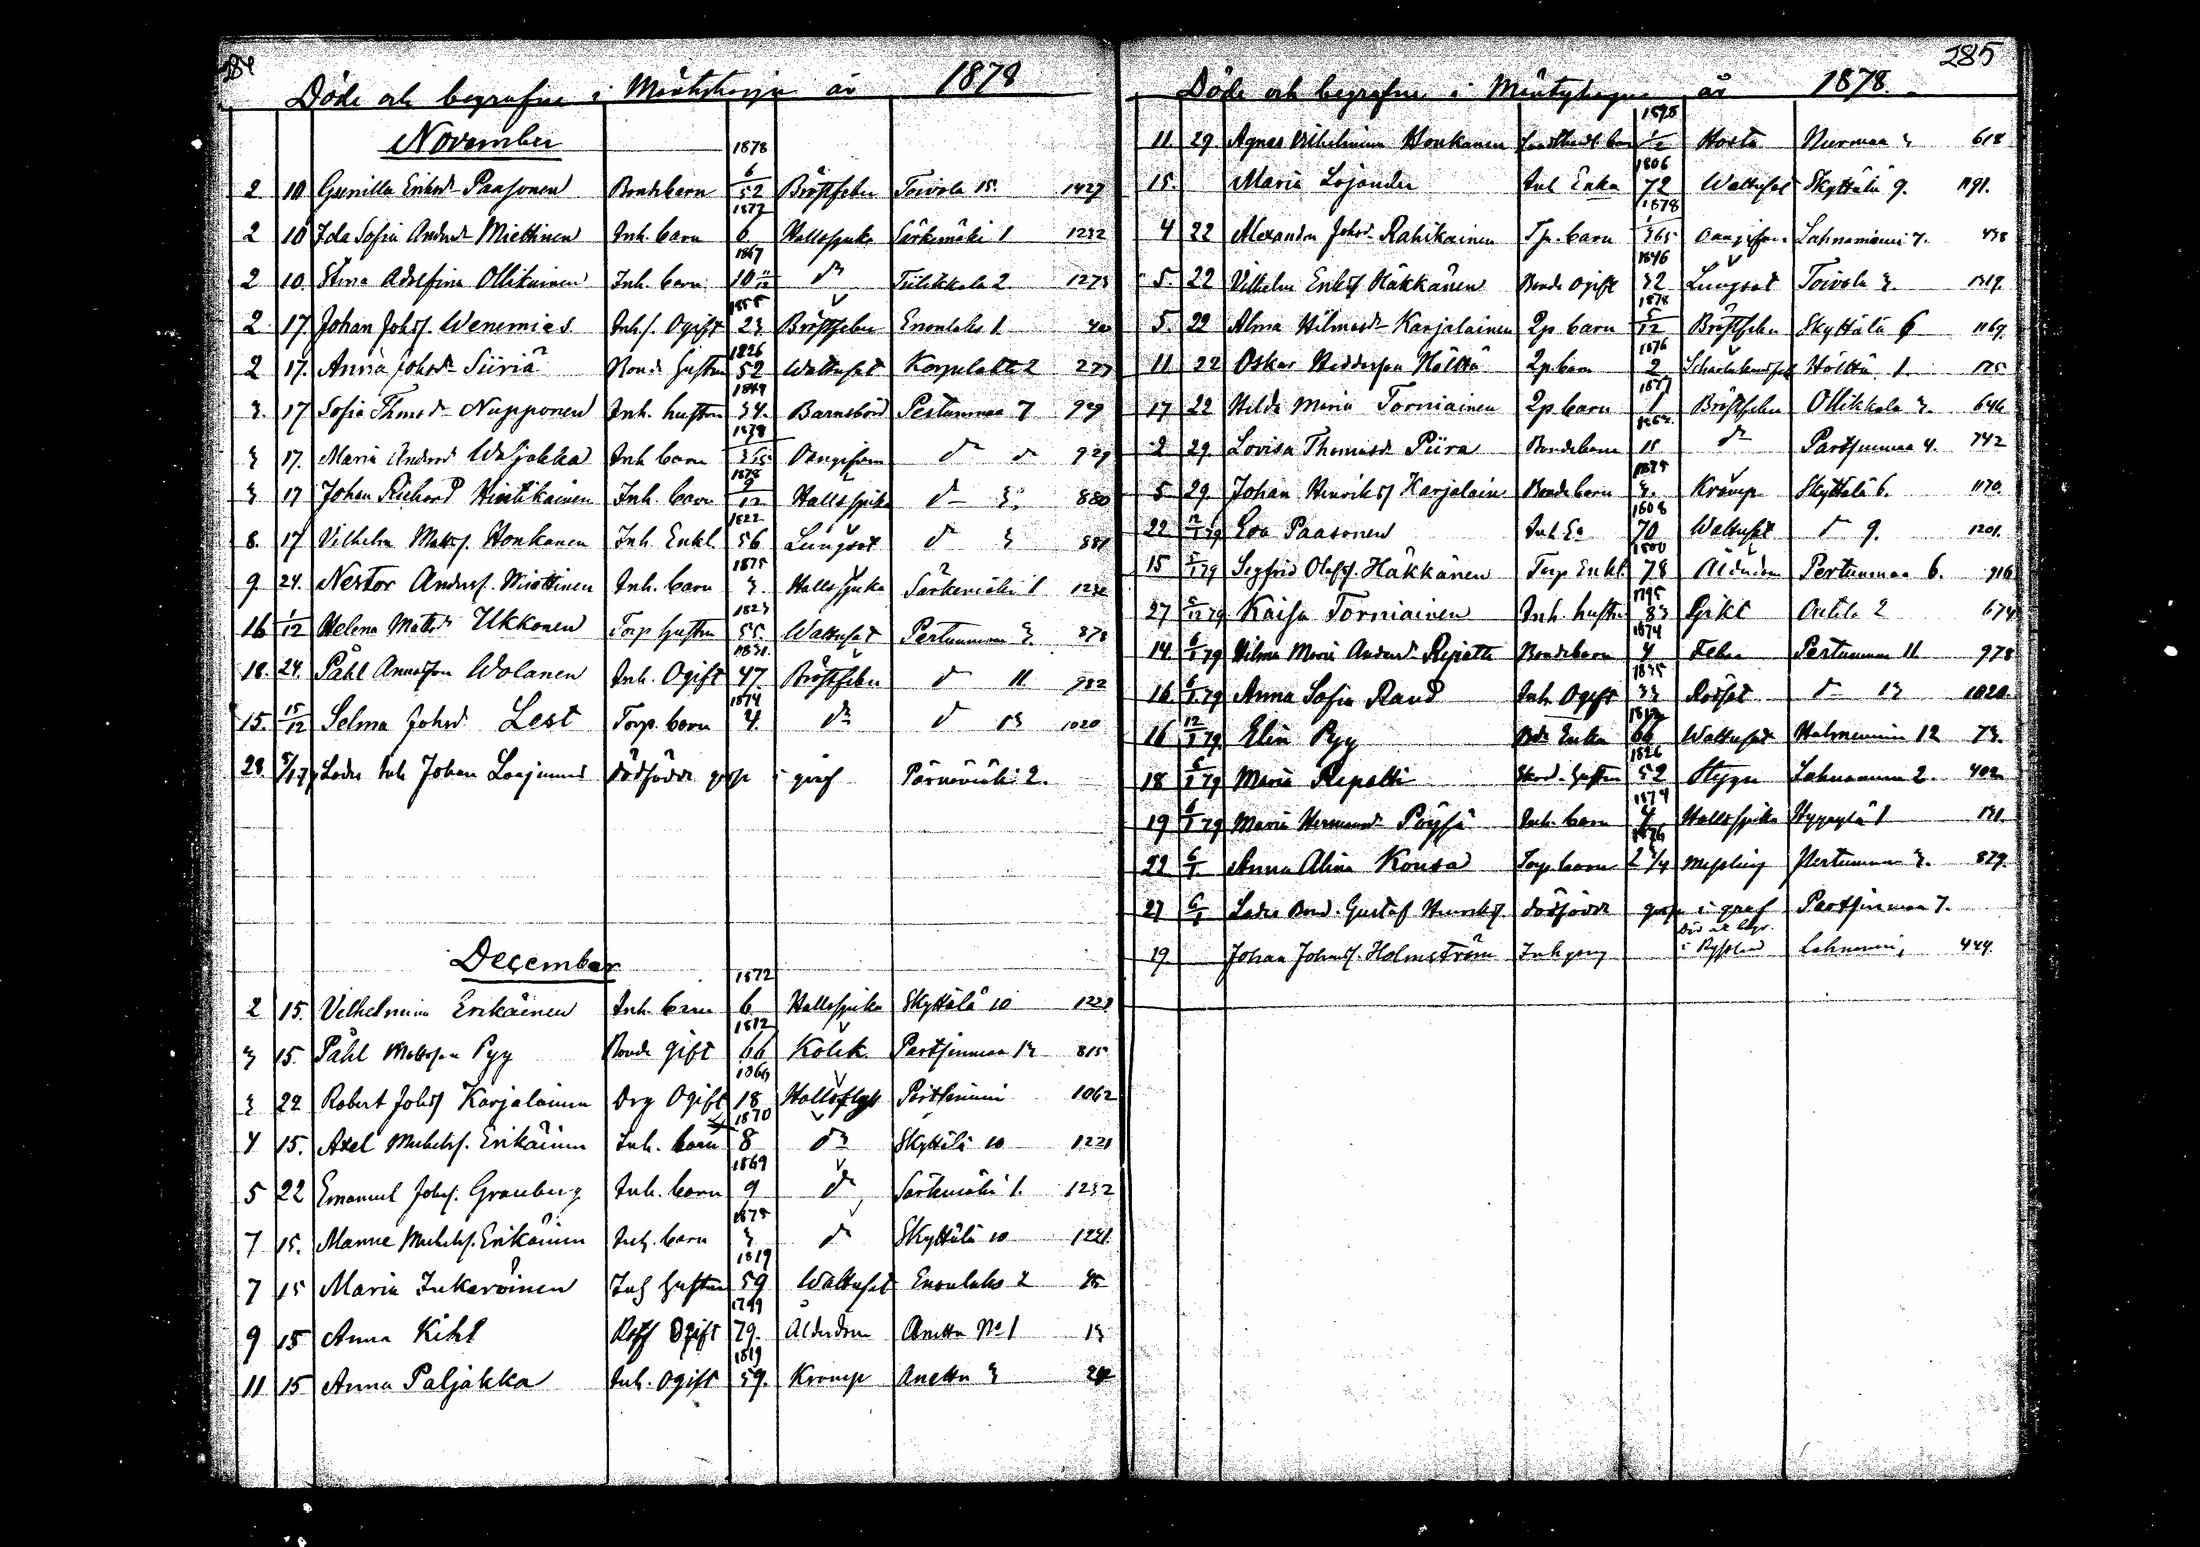 284
Döde och begrafne i Mäntyharju år 1878
November
1878
2 10 Gunilla Eriksd. Paasonen Bondebarn 6/52 Bröstfeber Toivola 15. 1427
1872
2 10 Ida Sofia Andersd. Miettinen Inh. barn 6 Halssjuka Särkemäki 1 1232
1867
2 10. Stina Adolfina Ollikainen Inh. barn 10 11/12 do 2. 1273
1855
2 17. Johan Johsf. Wenemies Inhs. Ogift 23 Bröstfeber Enonlaks 1
1826
2 17. Anna Johsd. Siiriä Bond. Hustru 52 Wattusot Korpilaks 2
1844
3. 17 Sofia Thmsd. Nupponen Inh. hustru 34. Barnsbörd Pertunmaa 7 929
1878
3 17. Maria Andersd. Waljakka Inh. barn /365 Oangifven do do 929
1878
3 17 Johan Richard Hintikainen Inh. barn 9/12 Halssjuka do 3. 880
1822
8. 17 Vilhelm Mattsf. Honkanen Inh. Enkl. 56 Lungsot do 3 881
1875
9 24. Nestor Andersf. Miettinen Inh. barn 3. Halssjuka Särkemäki 1 1232
1823
16 1/12 Helena Mattsd. Ukkonen Torp Hustru 55. Wattusot Pertunmaa 3. 878
1831
18. 24. Påhl Andersson Wolanen Inh. Ogift 47 Bröstfeber do 11. 982
1874
15. 15/12 Selma Johsd. Lest Torp. barn 4. do do 13 1020
28 Inh. Johan dödfödde i graf Pärnämäki 2.
December
1872
2 15. Vilhelmina Erikäinen Inh. barn 6 Halssjuka Skyttälä 10 1221
1812
3 15. Påhl Mattsson Pyy Bonde gift 66 Kolik Partsinmaa 13 815
1860
3 22 Robert Johsf. Karjalainen Drg Ogift 18 1062
1870
4 15. Axel Michelsf. Erikäinen Inh. barn 8 do Skyttälä 10 1221
1869
5 22 Emanuel Johsf. Granberg Inh. barn 9 do Särkemäki 1. 1232
1875
7 15. Manne Michelsf. Erikäinen Inh. barn 3 do Skyttälä 10 1221
1819
7 15 Maria Inkeroinen Inh Hustru 59 Wattusot Enonlaks 2 45
1799
9 15 Anna Kihl Ogift 79. Ålderdom Anettu No 1 13
1819
11 15 Anna Paljakka Inh. Ogift 59. Kramp Anettu 3
285
Döde och begrafne i Mäntyharju år 1878.
1878
11. 29 Agnes Vilhelmina Honkanen Hosta Nurmaa 3 618
1806
15. Maria Lojander Inh Enka 72 Wattusot Skyttälä 9. 1191.
1878
4 22 Alexandra Johsd. Rahikainen Tp. barn /365 Oangifven Lahnaniemi 7. 438
1846
5. 22 Vilhelm Eriksf. Häkkänen Bonde Ogift 32 Lungsot Toivola 3. 1319.
1878
5. 22 Alma Hilmasd. Karjalainen Tp barn 5/12 Bröstfeber Skyttälä 6 1169
1876
11 22 Oskar Höltta Tp barn 2 Höltta 1. 175
1877
17 22 Hilda Maria Torniainen Tp barn 1 Bröstfeber Ollikkala 3. 646
2 29. Lovisa Thomasd. Piira Bondebarn 11 do Partsinmaa 4. 742
1875
5. 29. Johan Henriksf. Karjalain Bondebarn 3. Kramp Skyttälä 6. 1170.
1808
22 12/1 79 Eva Paasonen Inh. Ea 70 Wattusot do 9. 1201.
1800
15 5/1 79 Sigfrid Olofsf. Häkkänen Torp Enkl. 78 Ålderdom Pertunmaa 6. 916
1795
27 Kaisa Torniainen Inh. hustru 83 Antila 2 674
1874
14. 6/1 79 Hilma Maria Andersd. Repatti Bondebarn 4 Feber Pertunmaa 11 978
1845
16 6/1 79 Anna Sofia Rand Inh. Ogift 33 Rödsot do 13 1020.
1812
16 12/1 79 Elin Pyy Bde Enka 66 Wattusot Halmeniemi 12 73.
1826
18 5/1 79 Maria Repatti Hustru 52 Lahnaniemi 2. 402
1874
19 6/1 79 Maria Hermansd. Pöyhiä Inh. barn 4 Halssjuka 1 131.
1876
22 6/1 Anna Alina Konsa Torp. barn 2 3/4 Messling Pertunmaa 3. 879.
27 6/1 Bond. Gustaf Henriksf. dödfödde i graf Partsinmaa 7.
Död och begr.
19. Johan Johansf. Holmström i Ryssland Lahnaniemi 444.